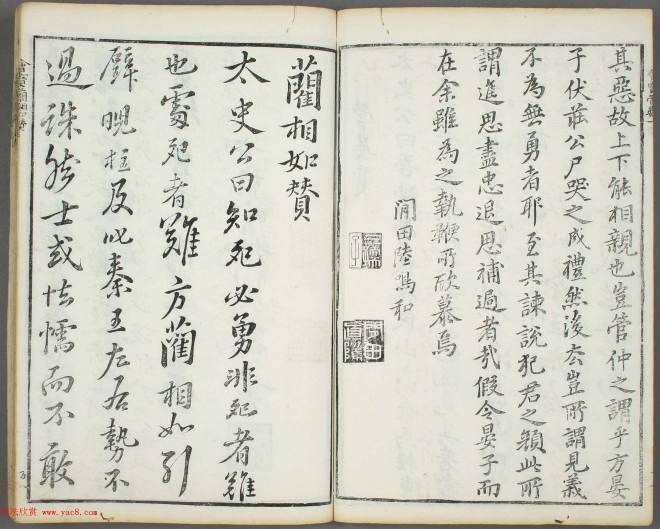 其惡故上下能相親也豈管仲之謂乎方晏
子伏莊公尸哭之成禮然後去豈所謂見義
不為無勇者耶至其諫說犯君之顏此所
謂進思盡忠退思補過者哉假令晏子而
在余雖為之執鞭所欣慕焉
閒田陸鴻和
藺相如贊
太史公曰知死必勇非死者難
也處死者難方藺相如引
璧睨柱及叱秦王左右勢不
過誅然士或怯懦而不敢
書法欣赏 www.yac8.com